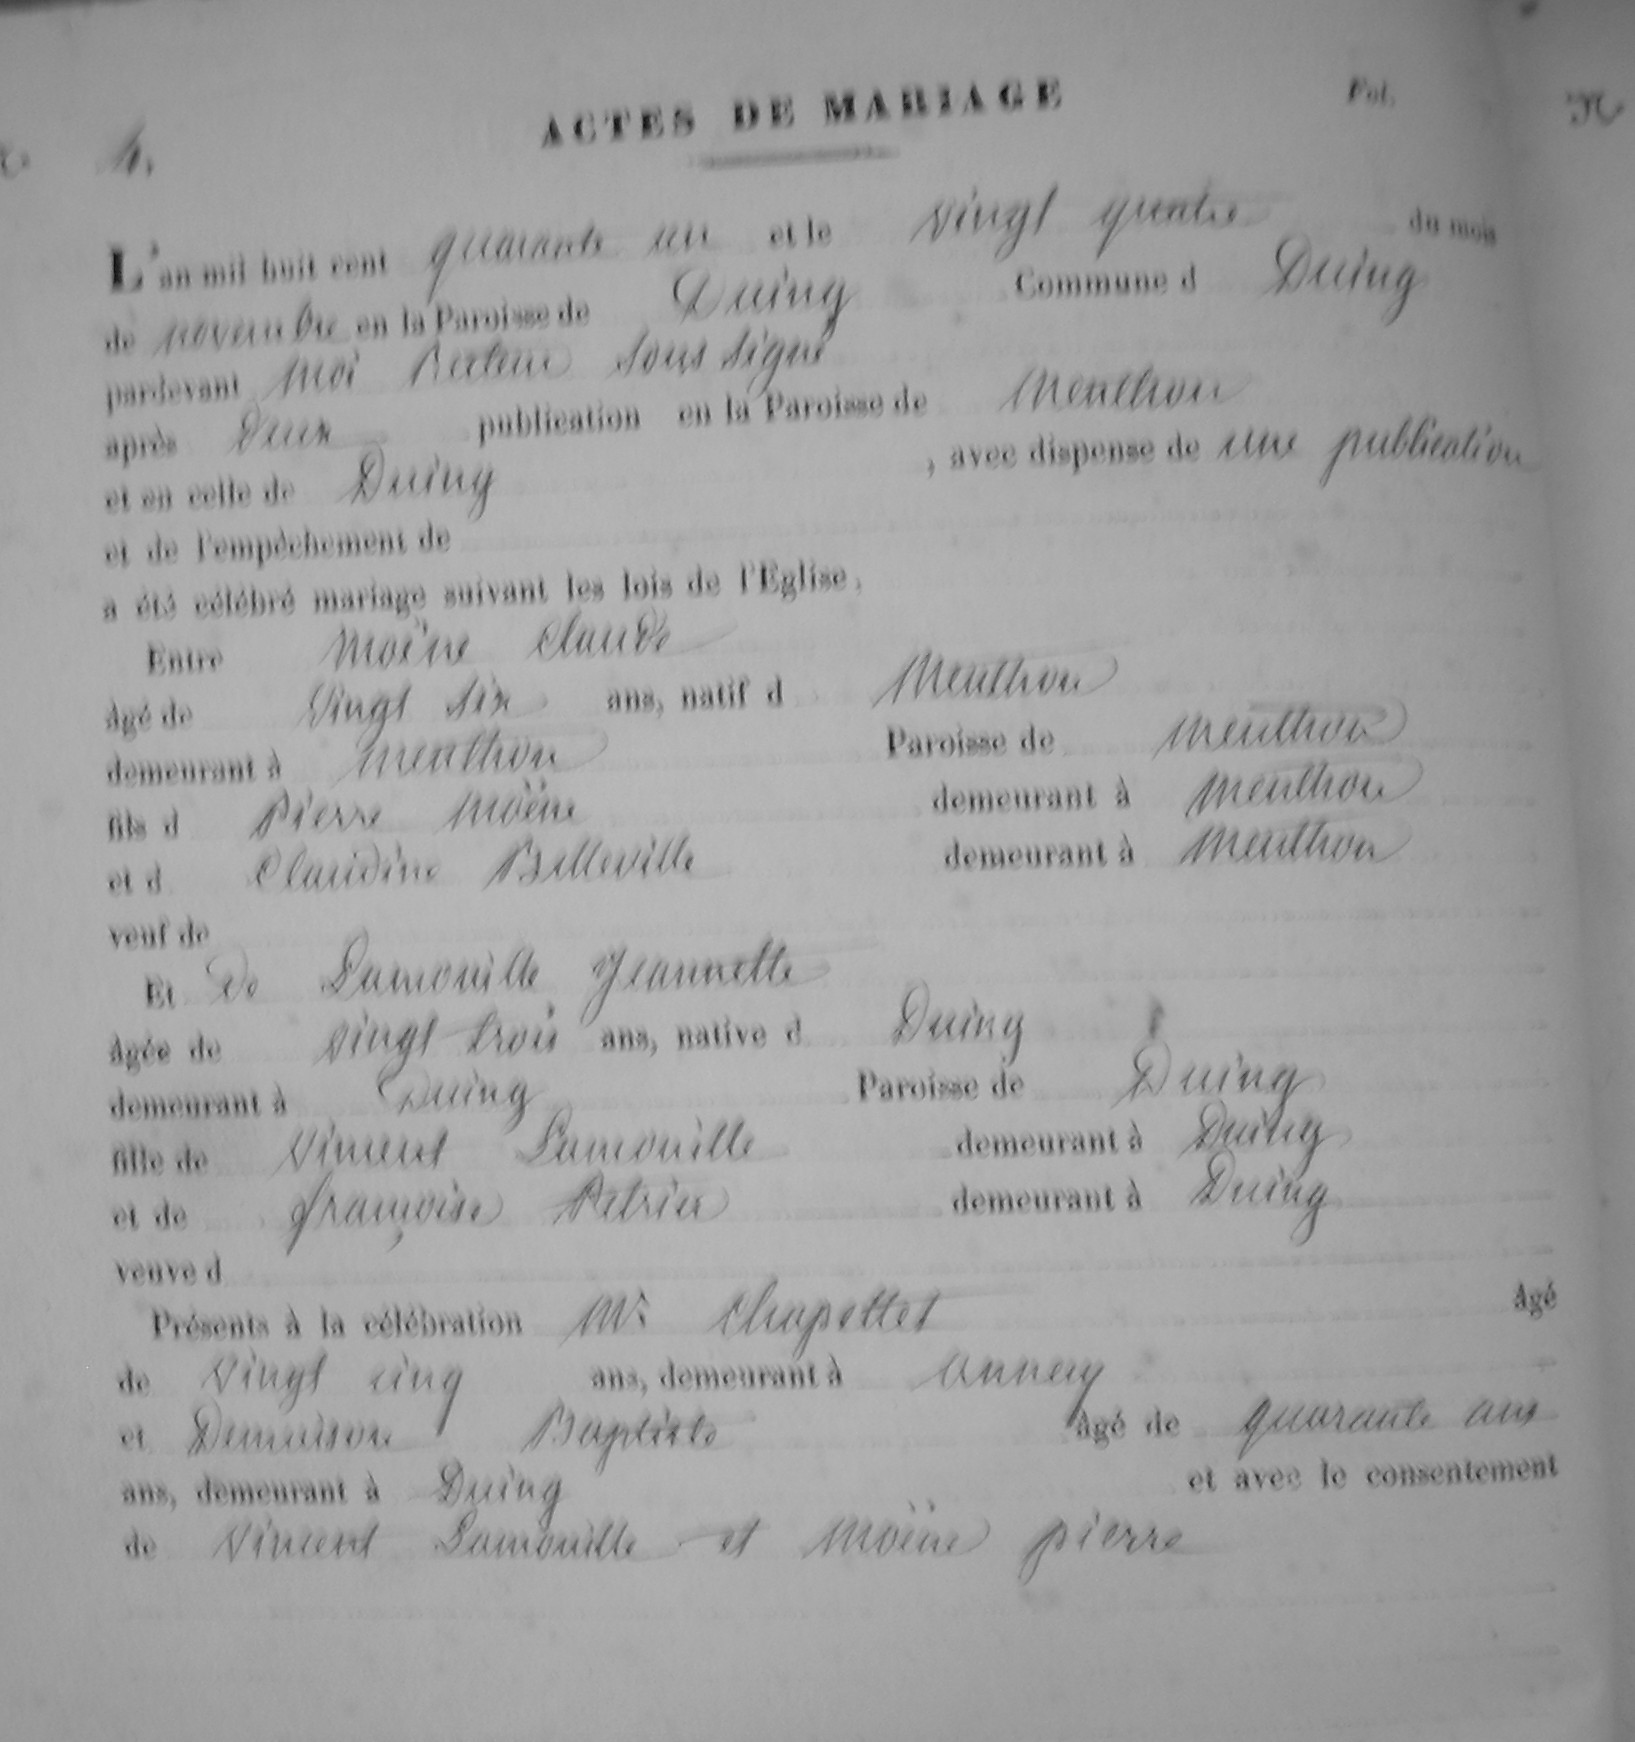 ACTES DE MARIAGE
Fol.
4.
L'an mil huit cent quarante un et le vingt quatre du mois
de novembre en la Paroisse de Duing Commune d Duing
pardevant moi Recteur sous signé
après deux publication en la Paroisse de Menthon
et en celle de Duing , avec dispense de une publication
et de l'empêchement de
a été célébré mariage suivant les lois de l'Eglise,
Entre Moëne Claude
âgé de vingt six ans, natif d Menthon
demeurant à Menthon Paroisse de Menthon
fils d Pierre Moëne demeurant à Menthon
et d Claudine Belleville demeurant à Menthon
veuf de
Et de Lamouille Jeannette
âgée de vingt trois ans, native d Duing
demeurant à Duing Paroisse de Duing
fille de Vincent Lamouille demeurant à Duing
et de françoise Petrier demeurant à Duing
veuve d
Présents à la célébration Mr Chapettet âgé
de vingt cinq ans, demeurant à annecy
et Demaison Baptiste âgé de quarante ans
ans, demeurant à Duing et avec le consentement
de Vincent Lamouille et Moëne pierre